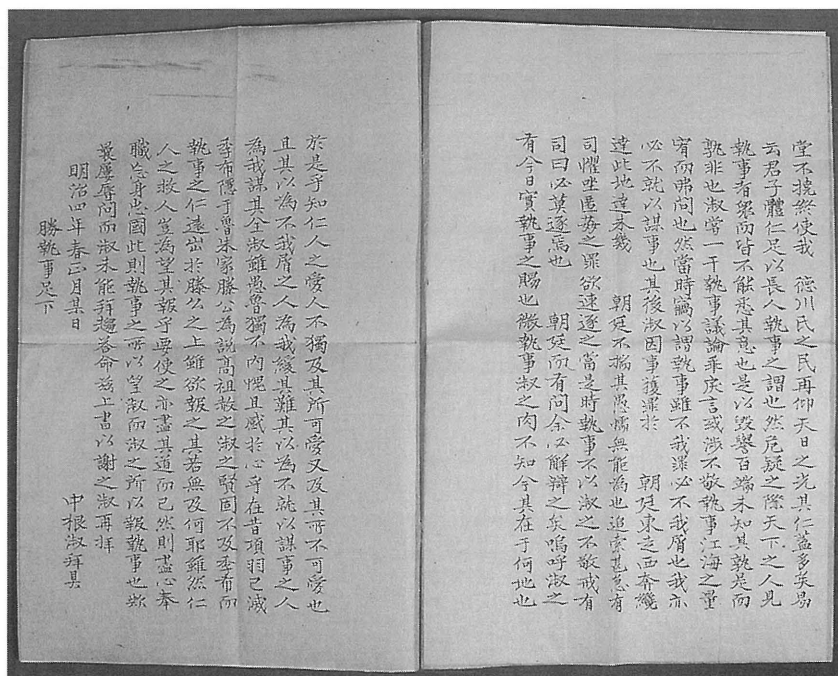 堂不撓終使我　德川氏之民再仰天日之光其仁蓋多矣易
云君子體仁足以長人執事之謂也然危疑之際天下之人見
執事者衆而皆不能悉其意也是以毀譽百端未知其孰是而
孰非也淑嘗一干執事議論乖戾言或涉不敬執事江海之量
宥而弗問也然當時竊以謂執事雖不我罪必不我屑也我亦
必不就以謀事也其後淑因事獲罪於　朝廷東走西奔纔
達此地達未幾　朝廷不揣其愚懦無能為也追索甚急有
司懼坐匿菐之罪欲速逐之當是時執事不以淑之不敬戒有
司曰必莫逐焉也　朝廷而有問余必解辯之矣嗚呼淑之
有今日實執事之賜也微執事淑之肉不知今其在于何地也
於是乎知仁人之愛人不獨及其所可愛又及其所不可愛也
且其以為不我屑之人為我緩其難其以為不就以謀事之人
為我謀其全淑雖愚魯獨不内愧且感於心乎在昔項羽已滅
季布隱于魯朱家滕公為說高祖赦之淑之賢固不及季布而
執事之仁遠出於滕公之上雖欲報之其若無及何耶雖然仁
人之救人豈為望其報乎要使之亦盡其道而已然則盡心奉
職忘身忠國此則執事之所以望淑而淑之所以報執事也歟
曩屢辱問而淑未能拜趨答命茲上書以謝之淑再拜
明治四年春正月某日　中根淑拜具
勝執事足下